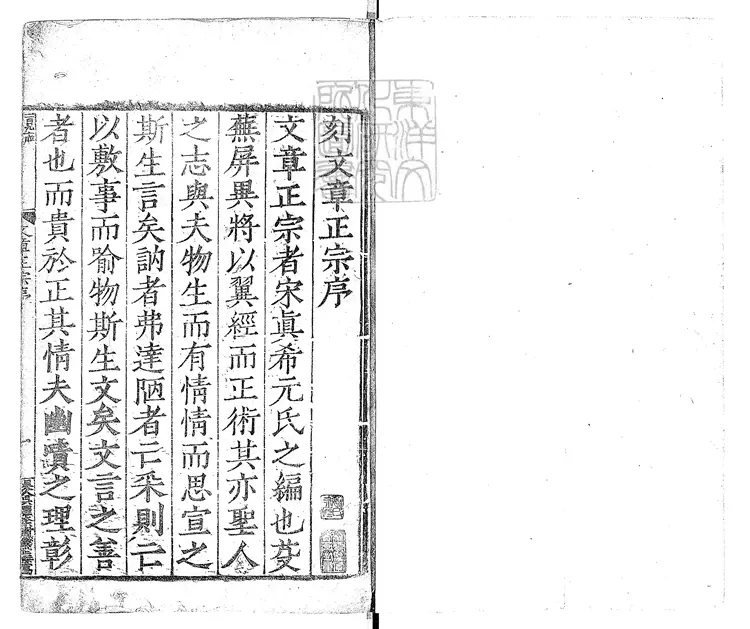 刻文章正宗序
文章正宗者宋眞希元氏之編也芟
蕪屏異將以翼經而正術其亦聖人
之志與夫物生而有情情而思宣之
斯生言矣訥者弗達陋者亡采則亡
以敷事而喻物斯生文矣文言之善
者也而貴於正其情夫幽賾之理彰
文章正宗序